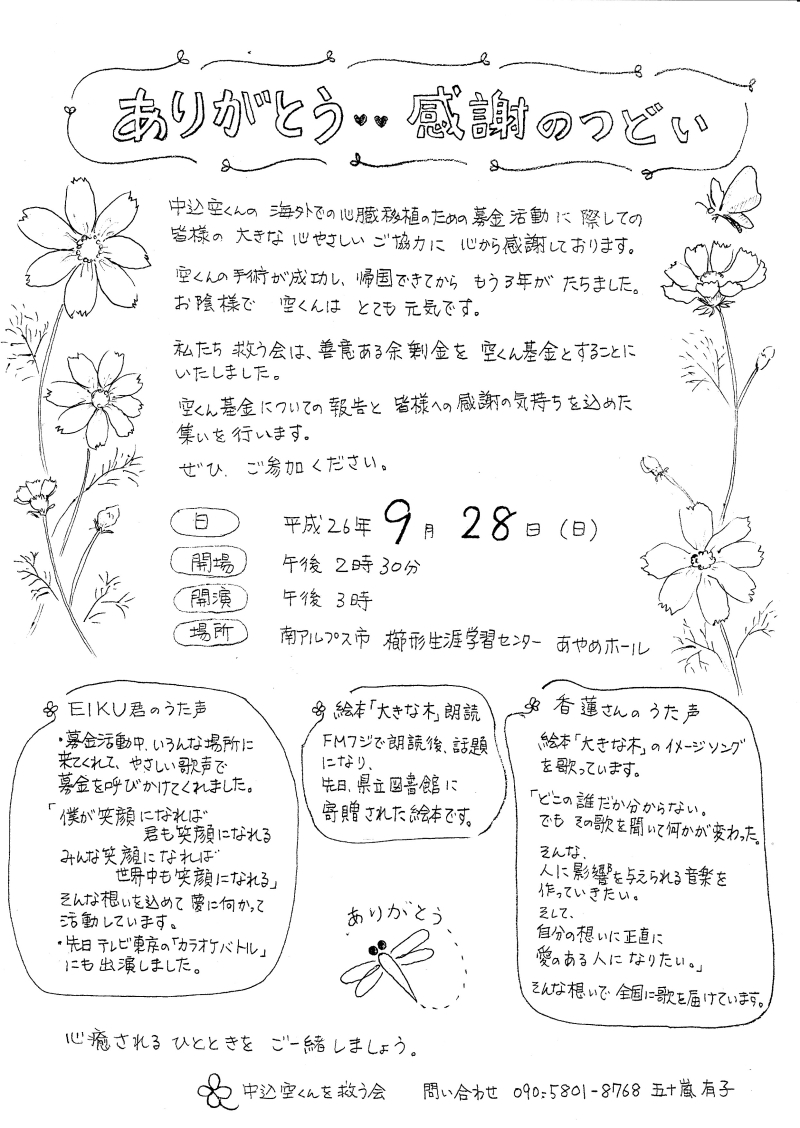 ありがとう♥♥感謝のつどい
中込空くんの 海外での心臓移植のための募金活動に際しての
皆様の 大きな 心やさしい ご協力に 心から感謝しております。
空くんの手術が成功し、帰国できてから もう3年が たちました。
お陰様で 空くんは とても 元気です。
私たち 救う会は、善意ある余剰金を 空くん基金とすることに
いたしました。
空くん基金についての報告と 皆様への感謝の気持ちを込めた
集いを行います。
ぜひ、ご参加ください。
日 平成26年 9月 28日(日)
開場 午後 2時30分
開演 午後 3時
場所 南アルプス市 櫛形生涯学習センター あやめホール
EIKU君のうた声
・募金活動中、いろんな場所に
来てくれて、やさしい歌声で
募金を呼びかけてくれました。
「僕が笑顔になれば
君も笑顔になれる
みんな笑顔になれば
世界中も笑顔になれる」
そんな想いを込めて夢に向かって
活動しています。
・先日テレビ東京の「カラオケバトル」
にも出演しました。
絵本「大きな木」朗読
FMフジで朗読後、話題
になり、
先日、県立図書館に
寄贈された絵本です。
香蓮さんのうた声
絵本「大きな木」のイメージソング
を歌っています。
「どこの誰だか分からない。
でも その歌を聞いて何かが変わった。
そんな、
人に影響を与えられる音楽を
作っていきたい。
そして、
自分の想いに正直に
愛のある人に なりたい。」
そんな想いで 全国に歌を届けています。
ありがとう
心癒される ひとときを ご一緒しましょう。
中込空くんを救う会 問い合わせ 090-5801-8768 五十嵐有子